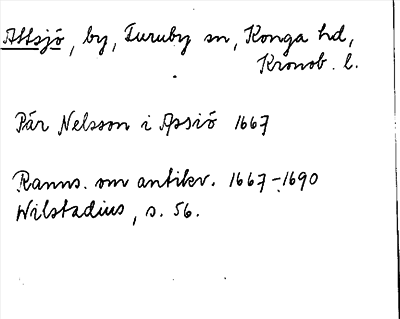 Attsjö, by, Furuby sn, Konga hd,
Kronob. l.
Pär Nelsson i Apsiö 1667
Ranns. om antikv. 1667-1690
Wilstadius, s. 56.